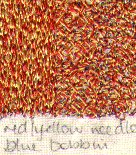 red/yellow needle
blue bobbin